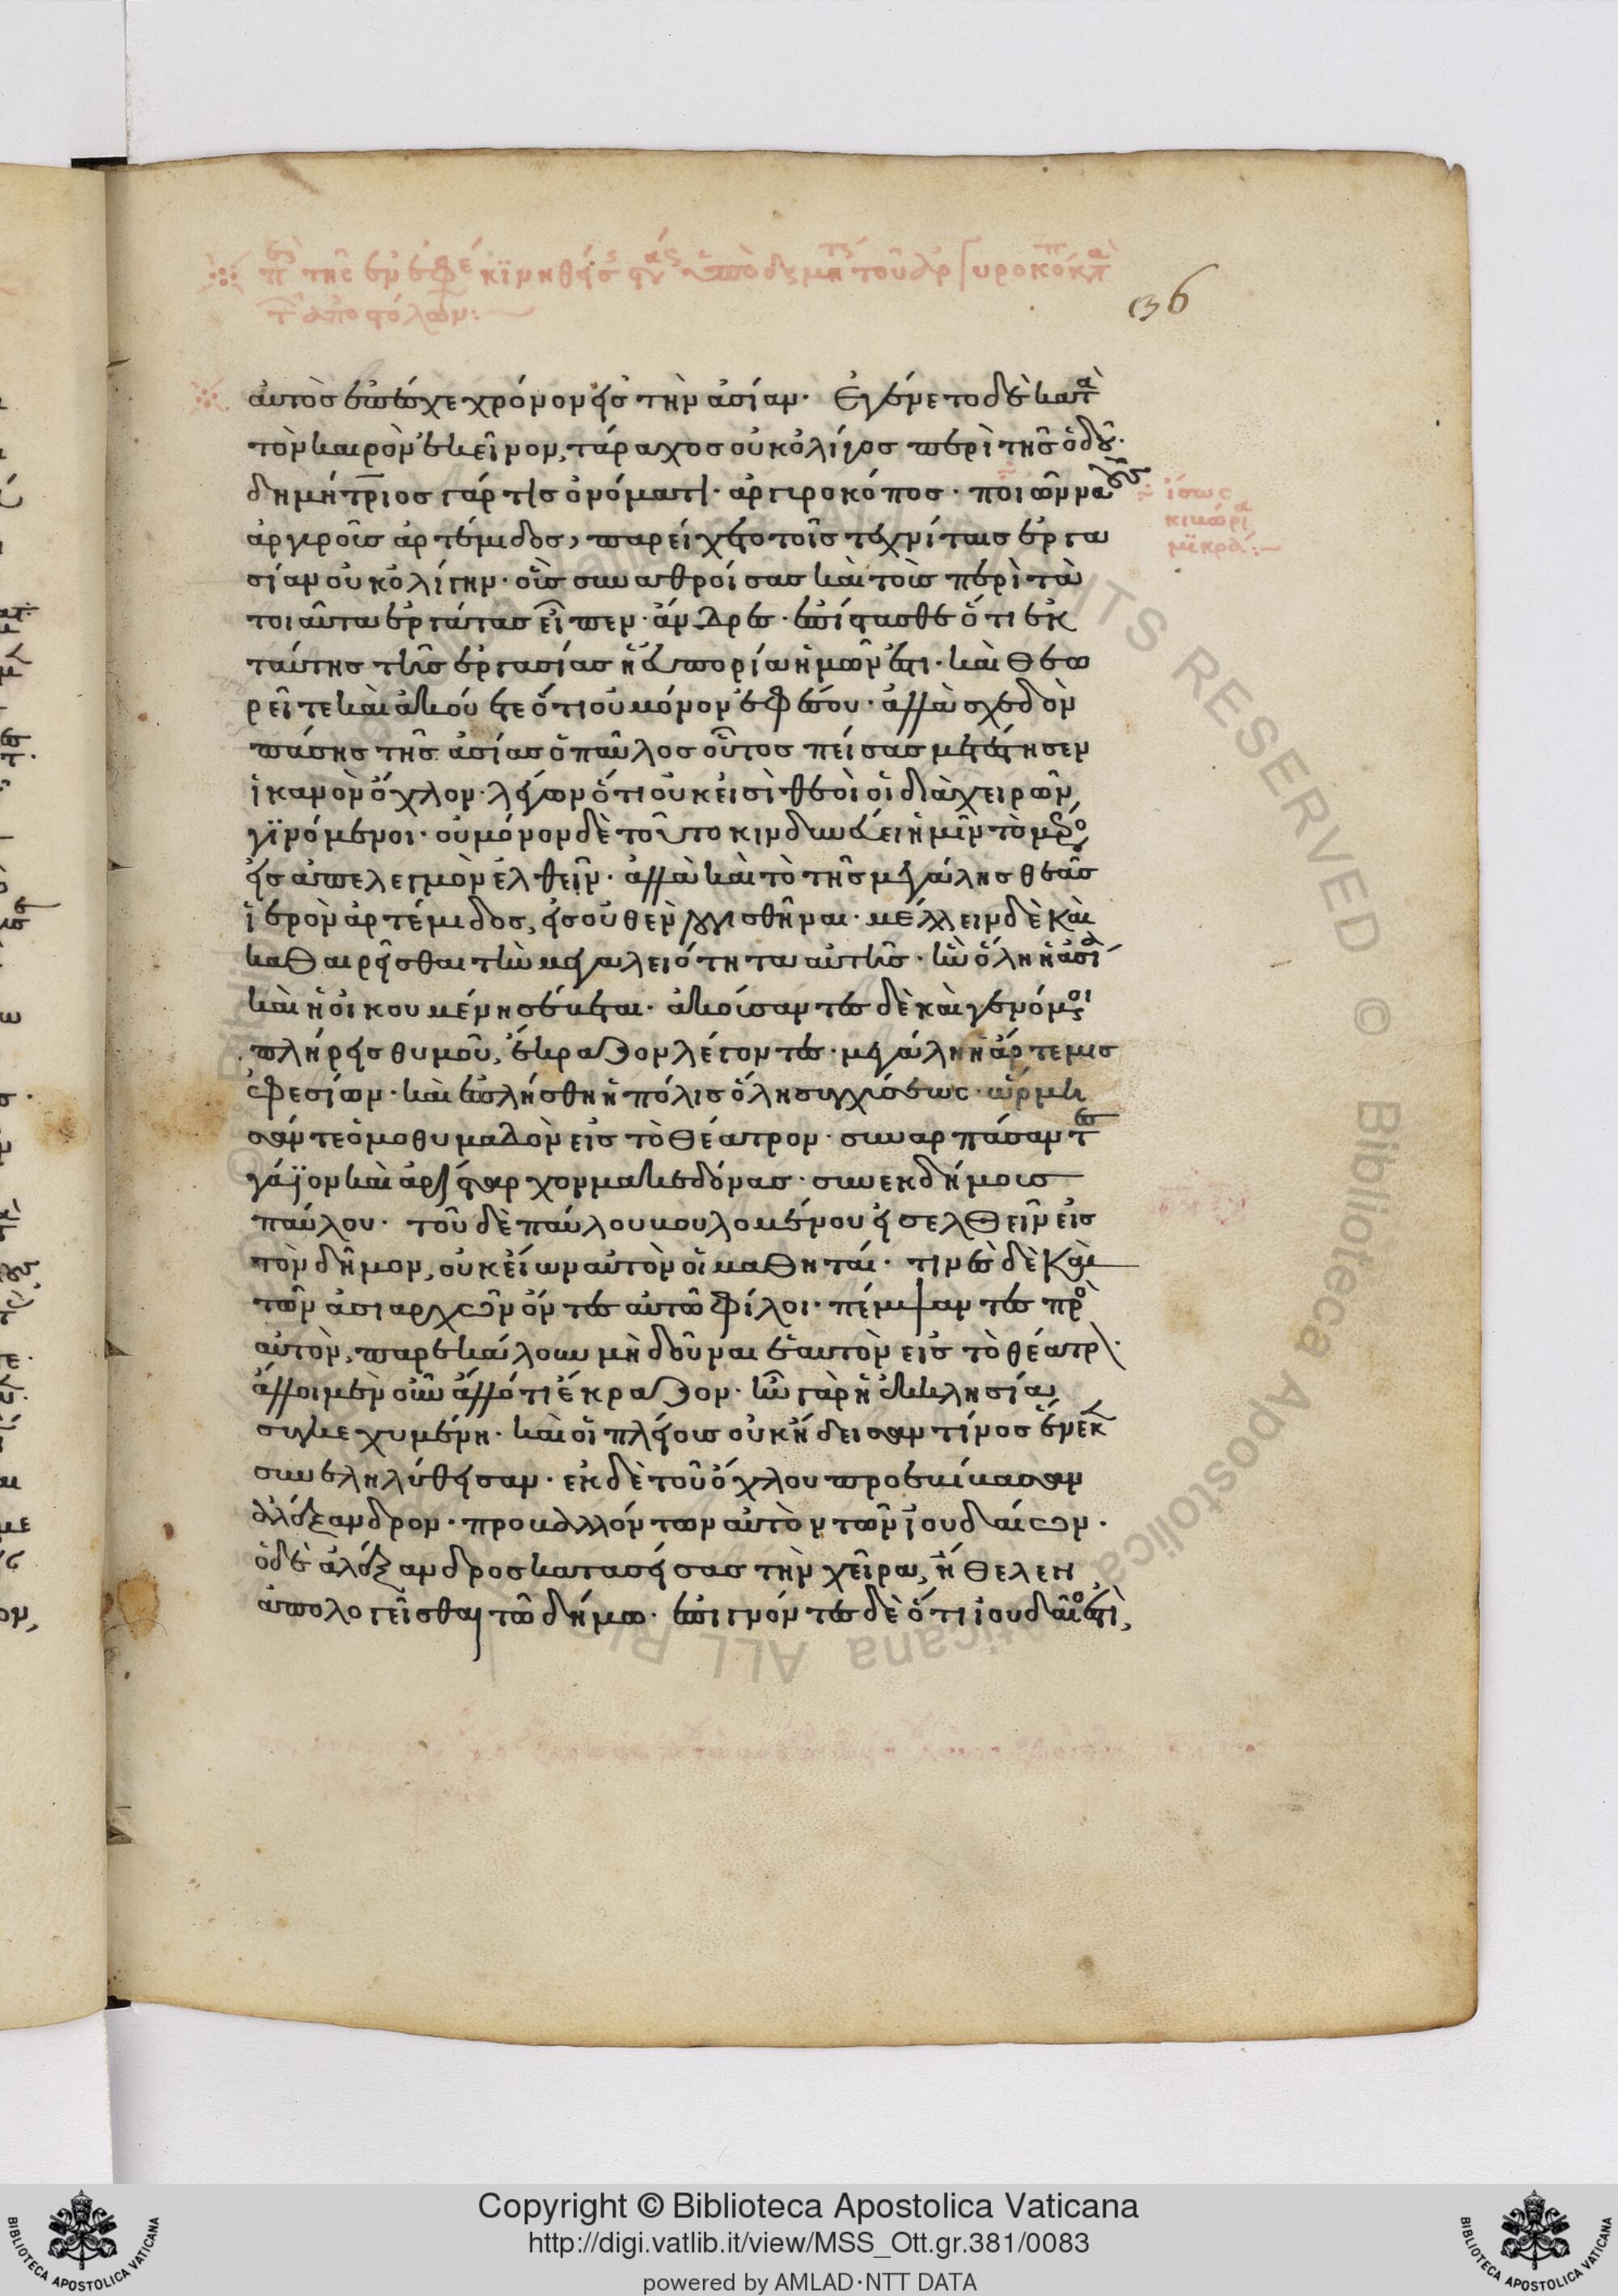 36
αὐτὸς ἐπέσχε χρόνον εἰς τὴν ἀσίαν· Ἐγένετο δὲ κατὰ
τὸν καιρὸν ἐκεῖνον, τάραχος οὐκ ὀλίγος περὶ τῆς ὁδοῦ·
δημήτριος γάρ τις ὀνόματι· ἀργυροκόπος· ποιῶν ναοὺς
ἀργυροῖς ἀρτέμιδος, παρείχετο τοῖς τεχνίταις ἐργα
σίαν οὐκ ὀλίγην· οἷς συναθροίσας καὶ τοῖς περὶ τὰ
τοιαῦτα ἐργάτας εἶπεν· ἄνδρες· ἐπίστασθε ὅτι ἐκ
ταύτης τῆς ἐργασίας ἡ εὐπορία ἡμῶν ἐστι· καὶ θεω
ρεῖτε καὶ ἀκούετε ὅτι οὐ μόνον ἐφέσου· ἀλλὰ σχεδὸν
πάσης τῆς ἀσίας ὁ παῦλος οὗτος πείσας μετέστησεν
ἱκανὸν ὄχλον· λέγων ὅτι οὐκ εἰσὶ θεοὶ οἱ διὰ χειρῶν
γϊνόμενοι· οὐ μόνον δὲ τοῦτο κινδυνεύει ἡμῖν τὸ μέρος
εἰς ἀπελεγμὸν ἐλθεῖν· ἀλλὰ καὶ τὸ τῆς μεγάλης θεᾶς
ἱερὸν ἀρτέμιδος, εἰς οὐθὲν λογισθῆναι· μέλλειν δὲ καὶ
καθαιρεῖσθαι τὴν μεγαλειότητα αὐτῆς· ἣν ὅλη ἡ ἀσία
καὶ ἡ οἰκουμένη σέβεται· ἀκούσαντες δὲ καὶ γενόμενοι
πλήρεις θυμοῦ, ἔκραζον λέγοντες· μεγάλη ἡ ἄρτεμις
ἐφεσίων· καὶ ἐπλήσθη ἡ πόλις ὅλη συγχύσεως· ὥρμη
σάν τε ὁμοθυμαδὸν εἰς τὸ θέατρον· συναρπάσαντες
γάϊον καὶ ἀρίσταρχον μακεδόνας· συνεκδήμοις
παύλου· τοῦ δὲ παύλου βουλομένου εἰσελθεῖν εἰς
τὸν δῆμον, οὐκ εἴων αὐτὸν οἱ μαθηταί· τινὲς δὲ καὶ
τῶν ἀσιαρχῶν ὄντες αὐτῶ φίλοι· πέμψαντες πρὸς
αὐτὸν, παρεκάλουν μὴ δοῦναι ἑαυτὸν εἰς τὸ θέατρον·
ἄλλοι μὲν οὖν ἄλλό τι ἔκραζον· ἦν γὰρ ἡ ἐκκλησία
συγκεχυμένη· καὶ οἱ πλείους οὐκ ᾔδεισαν τίνος ἕνεκεν
συνεληλύθεισαν· ἐκ δὲ τοῦ ὄχλου προεβίβασαν
ἀλέξανδρον· προβαλλόντων αὐτὸν τῶν ἰουδαίων·
ὁ δὲ ἀλέξανδρος κατασείσας τὴν χεῖρα, ἤθελεν
ἀπολογεῖσθαι τῶ δήμω· ἐπιγνόντες δὲ ὅτι ἰουδαῖός ἐστι,
ἴσως
κιβώρια
μϊκρά:
Copyright © Biblioteca Apostolica Vaticana
http://digi.vatlib.it/view/MSS_Ott.gr.381/0083
powered by AMLAD·NTT DATA
BIBLIOTECA APOSTOLICA VATICANA
BIBLIOTECA APOSTOLICA VATICANA